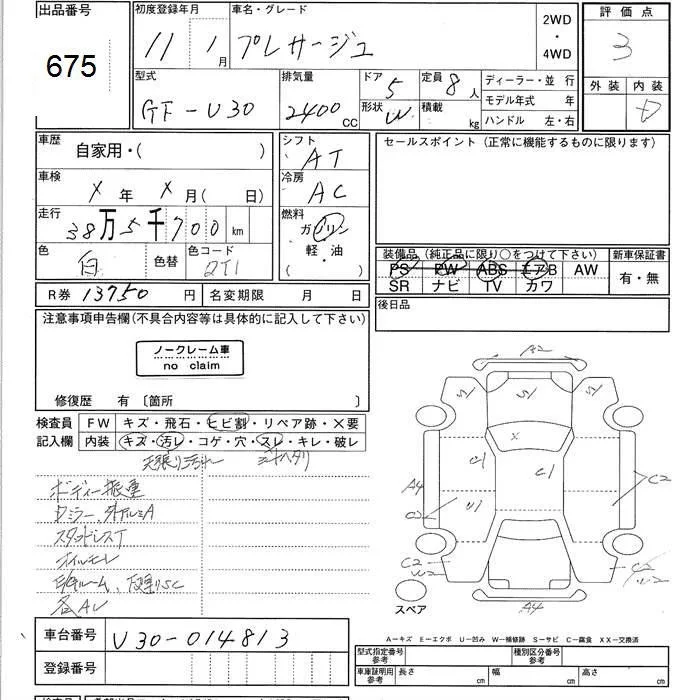 出品番号 初度登録年月 車名・グレード 2WD ・ 4WD 評価点
675 11 1月 プレサージュ 3
型式 排気量 ドア 定員 ディーラー・並行 外装 内装
GF-U30 2400cc 5 8人 モデル年式 年 D
形状 W 積載 kg ハンドル 左・右
車歴 自家用・( ) シフト AT セールスポイント(正常に機能するものに限ります)
車検 X年 X月( 日) 冷房 AC
走行 38万5千700km 燃料 ガソリン 軽・油 ( )
色 白 色替 色コード 2T1
装備品(純正品に限り○をつけて下さい) 新車保証書
PS PW ABS エアB AW 有・無
SR ナビ TV カワ
R券 13750円 名変期限 月 日 後日品
注意事項申告欄(不具合内容等は具体的に記入して下さい)
ノークレーム車
no claim
修復歴 有 〔箇所 〕
検査員 FW キズ・飛石・ヒビ割・リペア跡・X要
記入欄 内装 キズ・汚レ・コゲ・穴・スレ・キレ・破レ
天張り汚れ
ボディー振重
スタッドレスT
オイルモレ
各AU
A2
S1 S1 S1
X
C1 C1
A4 C2
C2 U1
C2 W2 C2 W2
A4
スペア
A-キズ E-エクボ U-凹み W-補修跡 S-サビ C-腐食 XX-交換済
車台番号 U30-014813
登録番号
型式指定番号 参考 種別区分番号 参考
車庫証明用 参考 長さ cm 幅 cm 高さ cm